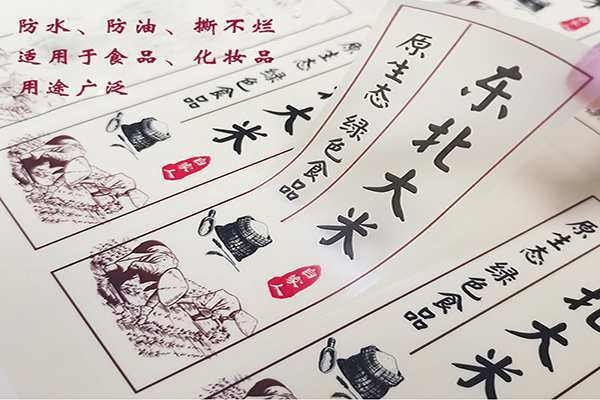 防水、防油、撕不烂
适用于食品、化妆品
用途广泛
东北大米
原生态 绿色食品
自家人
大米
绿色食品
自家人
北大米
原生态 绿色食品